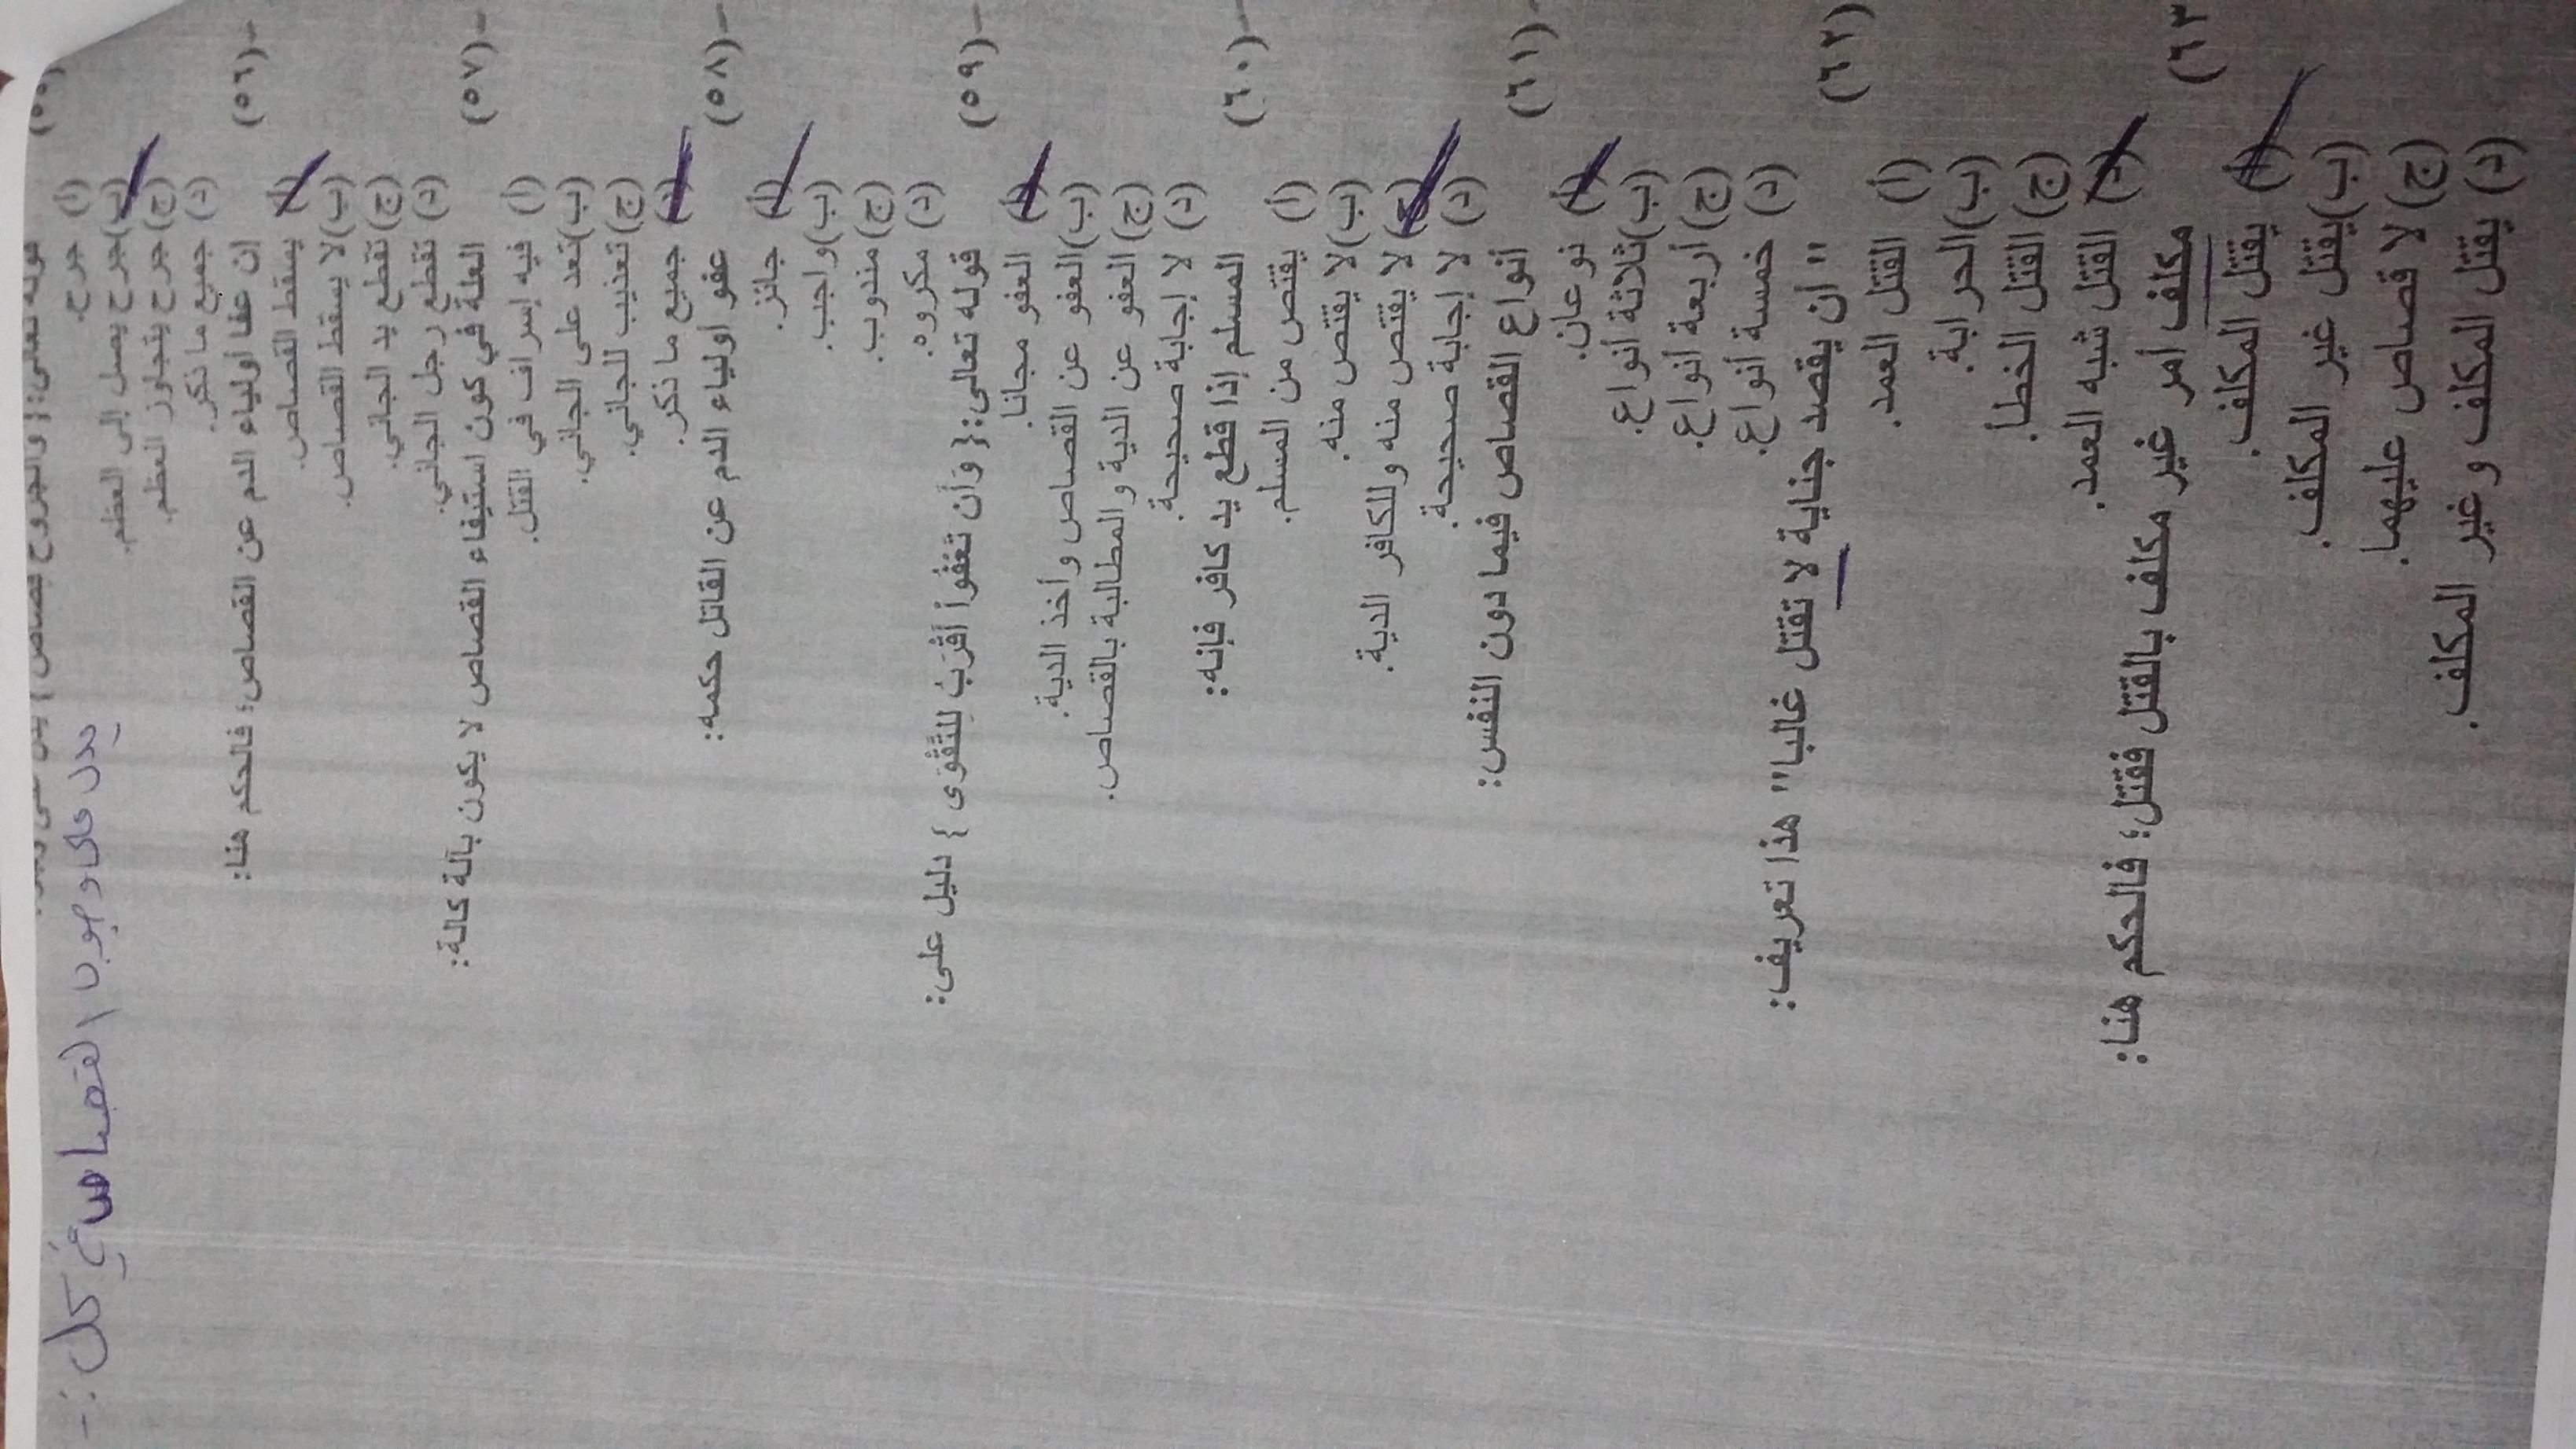 قوله تعالى: { والجروح قصاص }
يدل على وجوب القصاص في كل :-
(أ) جرح.
جرح يصل إلى العظم.
(ج) جرح يتجاوز العظم.
(د) جميع ما ذكر.
(٥٦)- إن عفا أولياء الدم عن القصاص؛ فالحكم هنا:
(أ) يسقط القصاص.
(ب) لا يسقط القصاص.
(ج) تقطع يد الجاني.
(د) تقطع رجل الجاني.
(٥٧)- العلة في كون استيفاء القصاص لا يكون بآلة كالة:
(أ) فيه إسراف في القتل.
(ب) تعد على الجاني.
(ج) تعذيب للجاني.
(د) جميع ما ذكر.
(٥٨)- عفو أولياء الدم عن القاتل حكمه:
(أ) جائز.
(ب) واجب.
(ج) مندوب.
(د) مكروه.
(٥٩)- قوله تعالى: { وَأَن تَعْفُوا أَقْرَبُ لِلتَّقْوَى } دليل على:
(أ) العفو مجانا.
(ب) العفو عن القصاص وأخذ الدية.
(ج) العفو عن الدية والمطالبة بالقصاص.
(د) لا إجابة صحيحة.
(٦٠)- المسلم إذا قطع يد كافر فإنه:
(أ) يقتص من المسلم.
(ب) لا يقتص منه.
(ج) لا يقتص منه وللكافر الدية.
(د) لا إجابة صحيحة.
(٦١)- أنواع القصاص فيما دون النفس:
(أ) نوعان.
(ب) ثلاثة أنواع.
(ج) أربعة أنواع.
(د) خمسة أنواع.
(٦٢) "أن يقصد جناية لا تقتل غالبا" هذا تعريف:
(أ) القتل العمد.
(ب) الحرابة.
(ج) القتل الخطأ.
(د) القتل شبه العمد.
(٦٣ مكلف أمر غير مكلف بالقتل فقتل؛ فالحكم هنا:
(أ) يقتل المكلف.
(ب) يقتل غير المكلف.
(ج) لا قصاص عليهما.
(د) يقتل المكلف وغير المكلف.